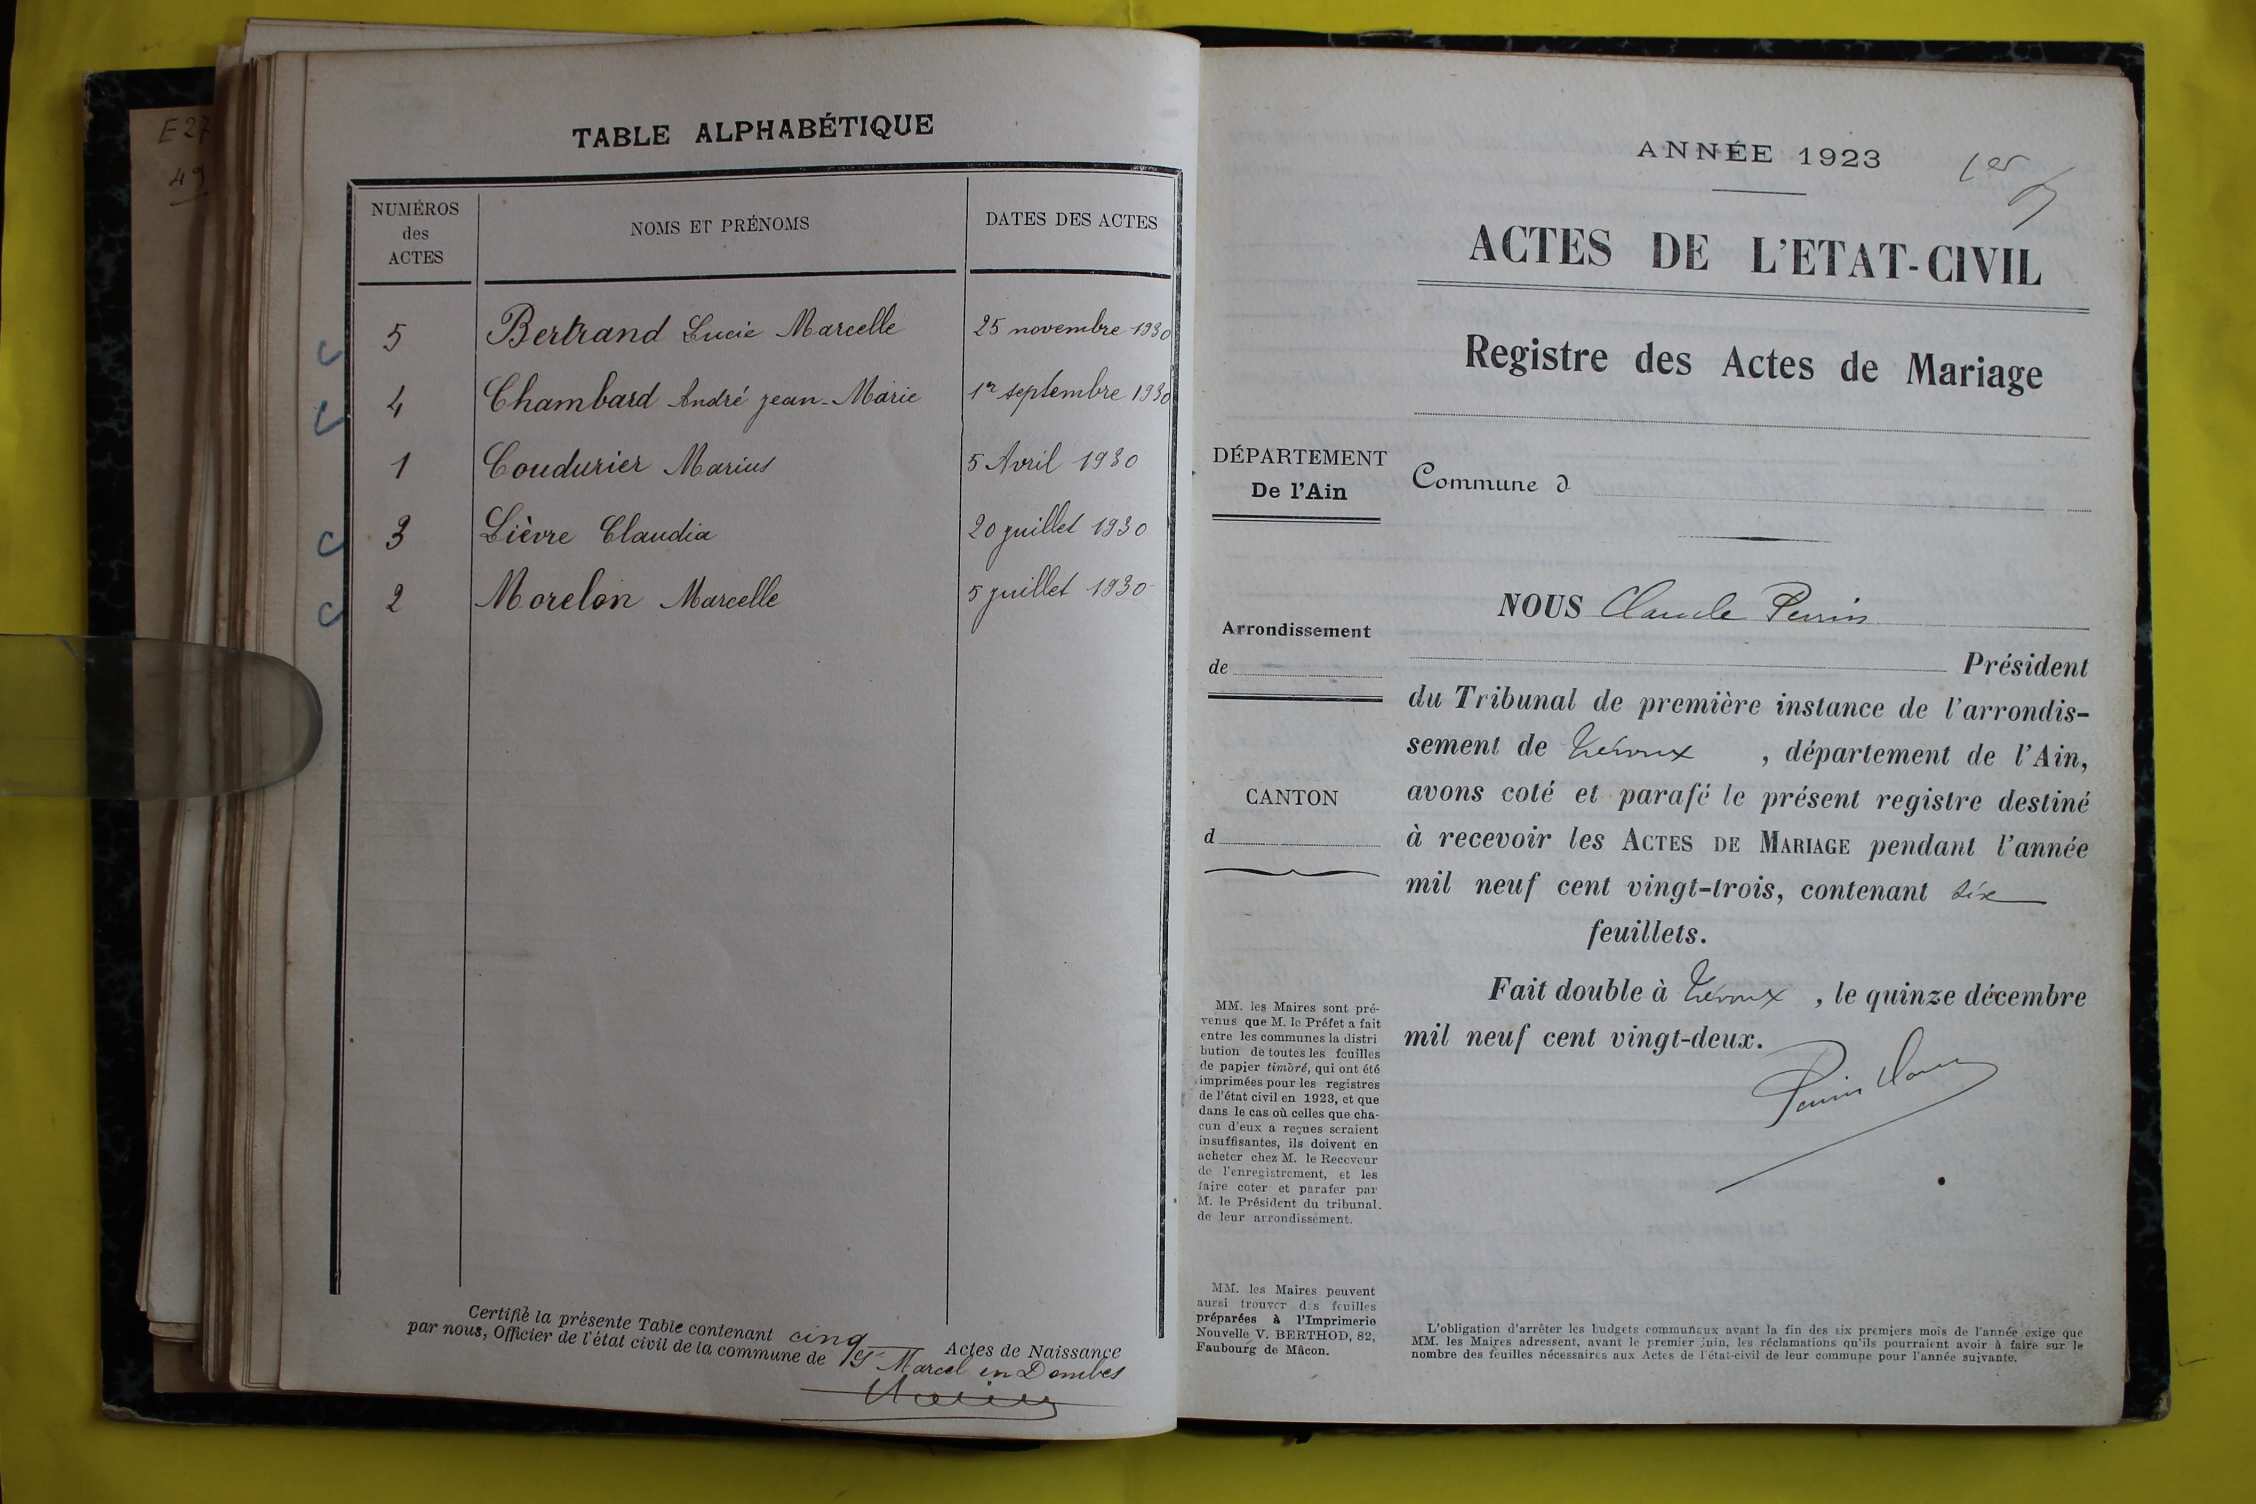 E27
49
TABLE ALPHABÉTIQUE
NUMÉROS des ACTES
NOMS ET PRÉNOMS
DATES DES ACTES
5 Bertrand Lucie Marcelle 25 novembre 1930
4 Chambard André Jean-Marie 1er septembre 1930
1 Coudurier Marius 5 Avril 1930
3 Lièvre Claudia 20 juillet 1930
2 Morelon Marcelle 5 juillet 1930
Certifié la présente Table contenant cinq Actes de Naissance
par nous, Officier de l'état civil de la commune de St Marcel en Dombes
ANNÉE 1923
1er
ACTES DE L'ETAT-CIVIL
Registre des Actes de Mariage
DÉPARTEMENT
De l'Ain
Commune d
Arrondissement
de
CANTON
d
NOUS Claude Perrin
Président
du Tribunal de première instance de l'arrondis-
sement de Trévoux, département de l'Ain,
avons coté et parafé le présent registre destiné
à recevoir les ACTES DE MARIAGE pendant l'année
mil neuf cent vingt-trois, contenant six
feuillets.
Fait double à Trévoux, le quinze décembre
mil neuf cent vingt-deux.
MM. les Maires sont pré-
venus que M. le Préfet a fait
entre les communes la distri
bution de toutes les feuilles
de papier timbré, qui ont été
imprimées pour les registres
de l'état civil en 1923, et que
dans le cas où celles que cha-
cun d'eux a reçues seraient
insuffisantes, ils doivent en
acheter chez M. le Receveur
de l'enregistrement, et les
faire coter et parafer par
M. le Président du tribunal
de leur arrondissement.
MM. les Maires peuvent
aussi trouver des feuilles
préparées à l'Imprimerie
Nouvelle V. BERTHOD, 82,
Faubourg de Mâcon.
L'obligation d'arrêter les budgets communaux avant la fin des six premiers mois de l'année exige que
MM. les Maires adressent, avant le premier juin, les réclamations qu'ils pourraient avoir à faire sur le
nombre des feuilles nécessaires aux Actes de l'état-civil de leur commune pour l'année suivante.